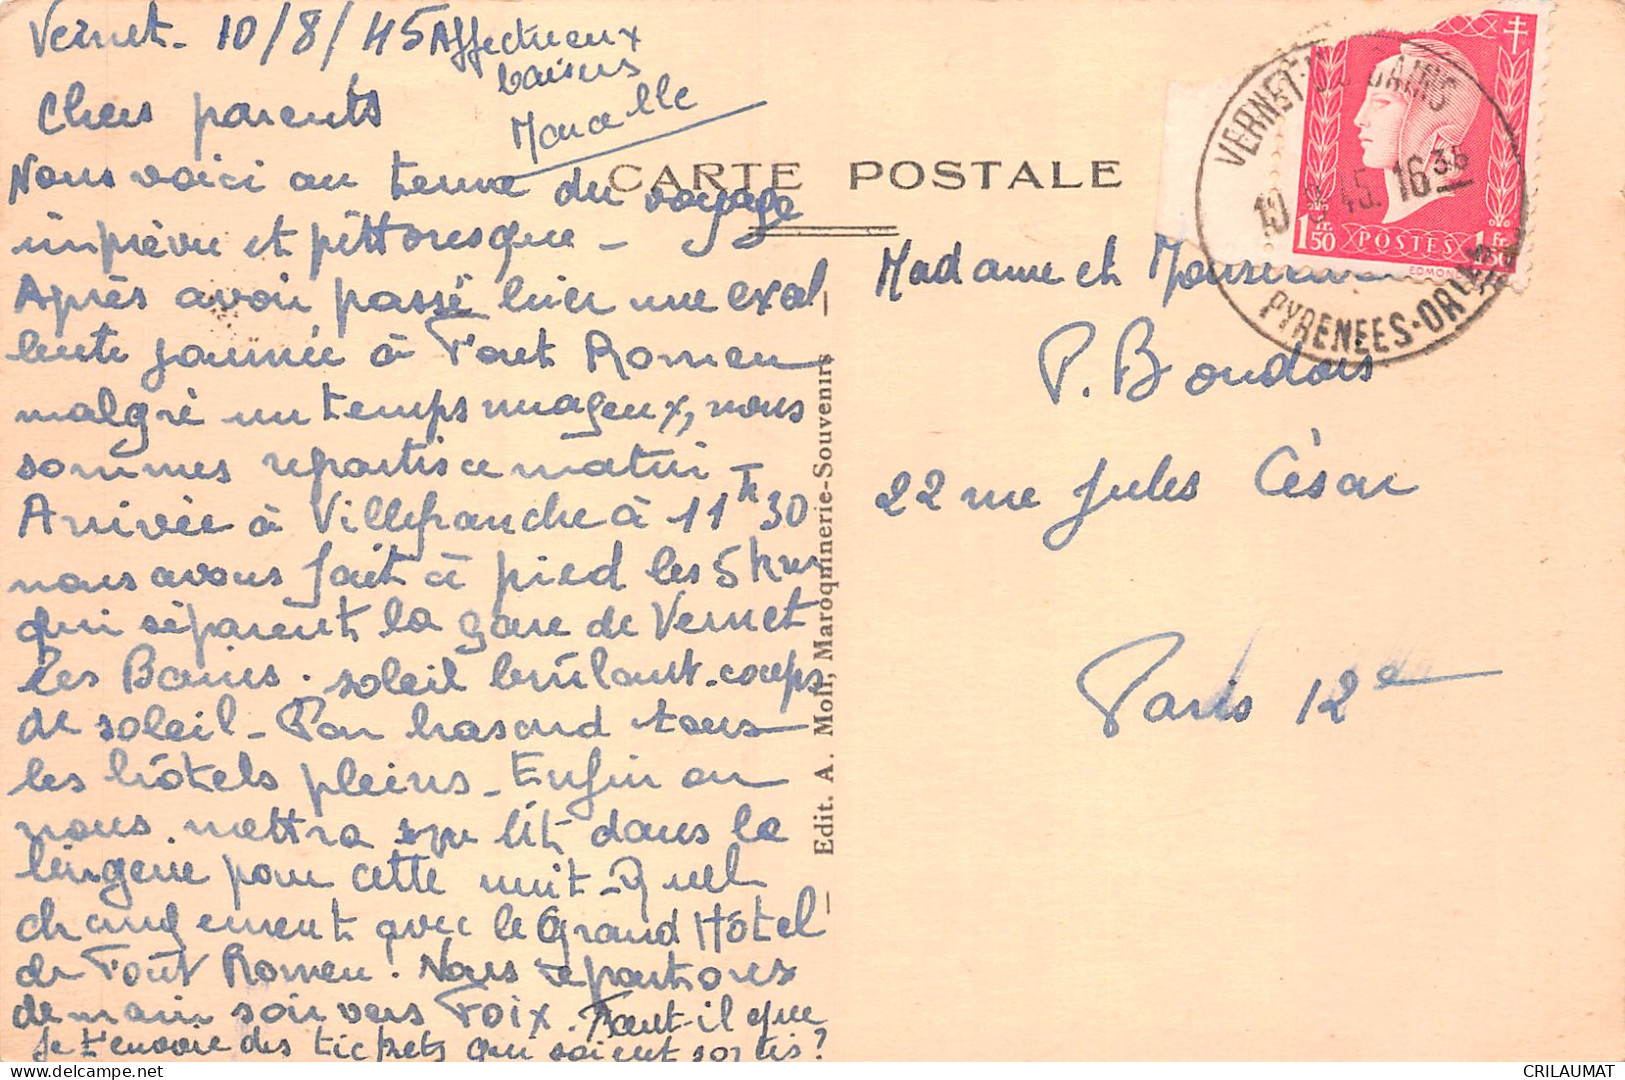 Vernet - 10/8/45
Affectueux
baisers
Marcelle
Chers parents
Nous voici au terme du voyage
imprévu et pittoresque -
Après avoir passé hier une excel
lente journée à Font Romeu
malgré un temps nuageux, nous
sommes repartis ce matin -
Arrivée à Villefranche à 11h30
nous avons fait à pied les 5 kms
qui séparent la gare de Vernet
les Bains. soleil brûlant - coups
de soleil - Par hasard tous
les hôtels pleins - Enfin on
nous mettra un lit dans la
lingerie pour cette nuit - Quel
changement avec le Grand Hôtel
de Font Romeu. Nous repartirons
demain soir vers Foix. Faut-il que
je t'envoie des tickets qui soient sortis?
CARTE POSTALE
Edit. A. Molé, Maroquinerie-Souvenirs
VERNET-LES-BAINS
10 8 45. 16 35
PYRENEES-ORLES
1 fr. 50 POSTES 1 fr. 50
EDMON
Madame et Monsieur
P. Boudois
22 rue Jules César
Paris 12e
CRILAUMAT